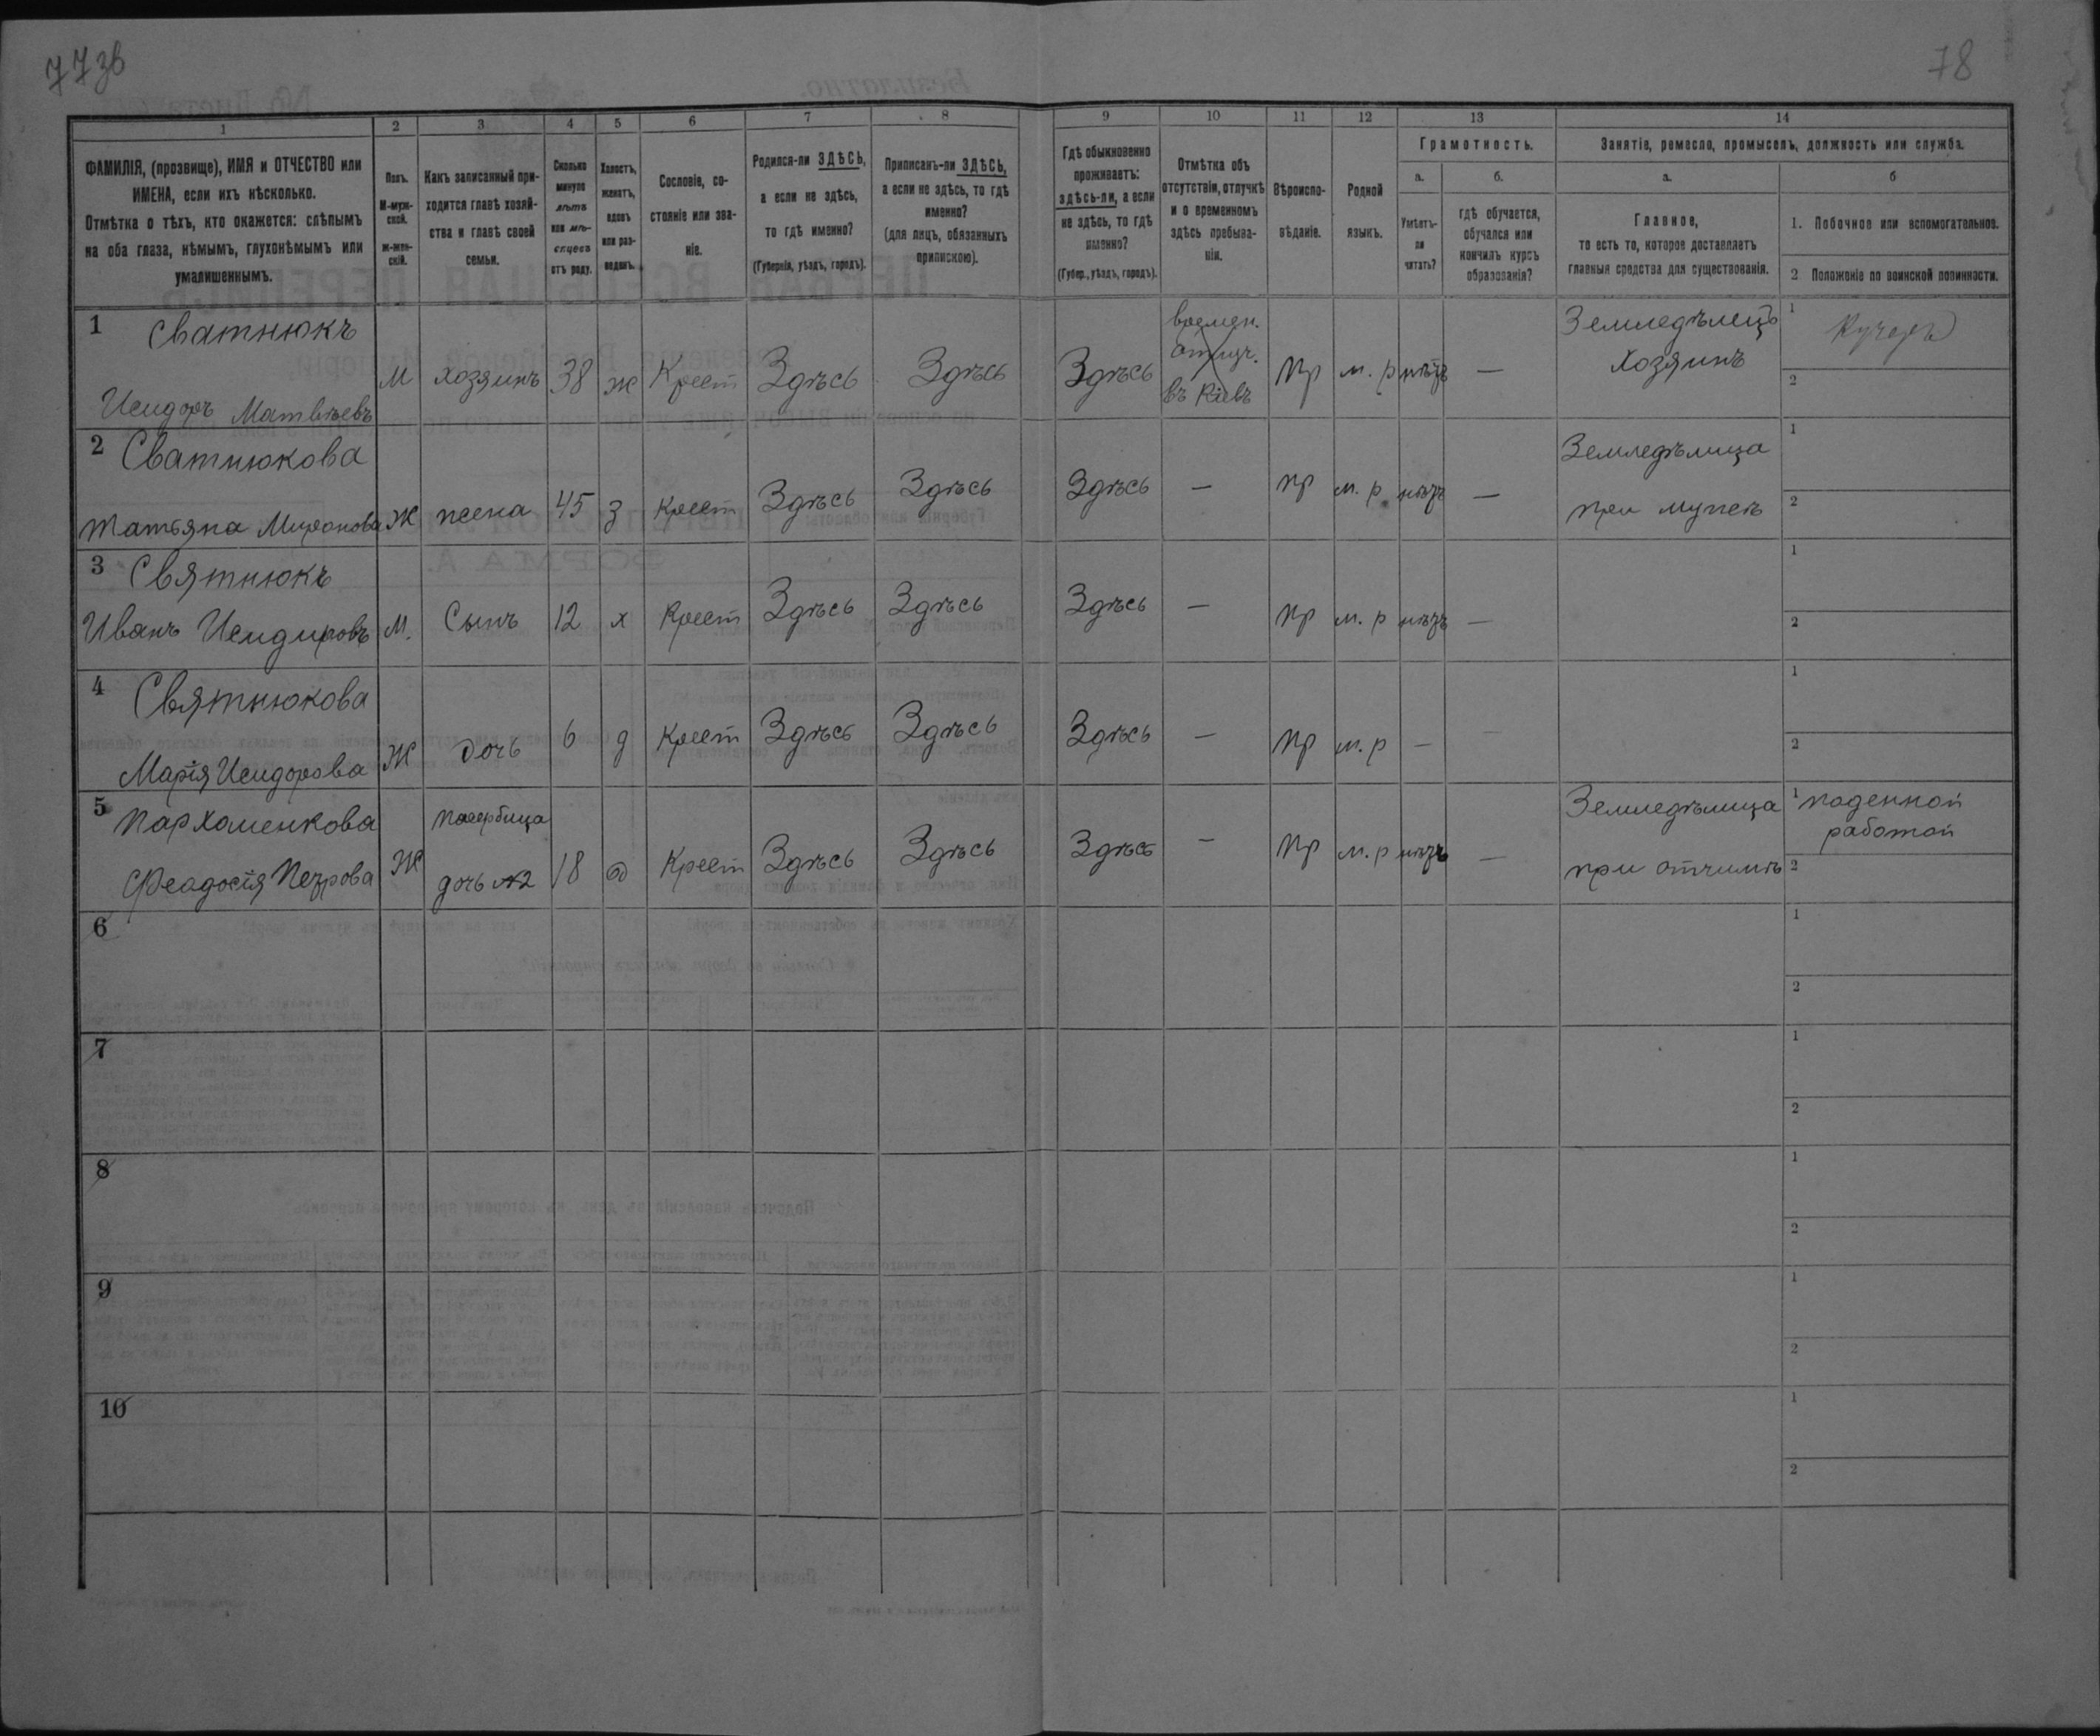 77 зв
78
1 2 3 4 5 6 7 8 9 10 11 12 13 14
ФАМИЛІЯ, (прозвище), ИМЯ и ОТЧЕСТВО или
ИМЕНА, если ихъ нѣсколько.
Отмѣтка о тѣхъ, кто окажется: слѣпымъ
на оба глаза, нѣмымъ, глухонѣмымъ или
умалишеннымъ.
Полъ.
М-муж-
ской.
Ж-жен-
скій.
Какъ записанный при-
ходится главѣ хозяй-
ства и главѣ своей
семьи.
Сколько
минуло
лѣтъ
или мѣ-
сяцевъ
отъ роду.
Холостъ,
женатъ,
вдовъ
или раз-
веденъ.
Сословіе, со-
стояніе или зва-
ніе.
Родился-ли ЗДѢСЬ,
а если не здѣсь,
то гдѣ именно?
(Губернія, уѣздъ, городъ).
Приписанъ-ли ЗДѢСЬ,
а если не здѣсь, то гдѣ
именно?
(для лицъ, обязанныхъ
припискою).
Гдѣ обыкновенно
проживаетъ:
здѣсь-ли, а если
не здѣсь, то гдѣ
именно?
(Губер., уѣздъ, городъ).
Отмѣтка объ
отсутствіи, отлучкѣ
и о временномъ
здѣсь пребыва-
ніи.
Вѣроиспо-
вѣданіе.
Родной
языкъ.
Грамотность.
а.
Умѣетъ-
ли
читать?
б.
гдѣ обучается,
обучался или
кончилъ курсъ
образованія?
Занятіе, ремесло, промыселъ, должность или служба.
а.
Главное,
то есть то, которое доставляетъ
главныя средства для существованія.
б
1. Побочное или вспомогательное.
2 Положеніе по воинской повинности.
1 Сватнюкъ
Исидоръ Матвѣевъ
М хозяинъ 38 ж Крест Здѣсь Здѣсь Здѣсь
времен.
отлуч.
въ Кіевъ
пр м. р нѣтъ —
Земледѣлецъ
хозяинъ
1 Кучеръ
2
2 Сватнюкова
Татьяна Миронова
Ж жена 45 з Крест Здѣсь Здѣсь Здѣсь — пр м. р нѣтъ —
Земледѣлица
при мужѣ
1
2
3 Святнюкъ
Иванъ Исидоровъ
М. Сынъ 12 х Крест Здѣсь Здѣсь Здѣсь — пр м. р нѣтъ —
1
2
4 Святнюкова
Марія Исидорова
Ж дочь 6 д Крест Здѣсь Здѣсь Здѣсь — пр м. р —
1
2
5 Пархоменкова
Феадосія Петрова
Ж
пасербица
дочь №2
18 д Крест Здѣсь Здѣсь Здѣсь — пр м. р нѣтъ —
Земледѣлица
при отчимѣ
1 поденной
работой
2
6
1
2
7
1
2
8
1
2
9
1
2
10
1
2